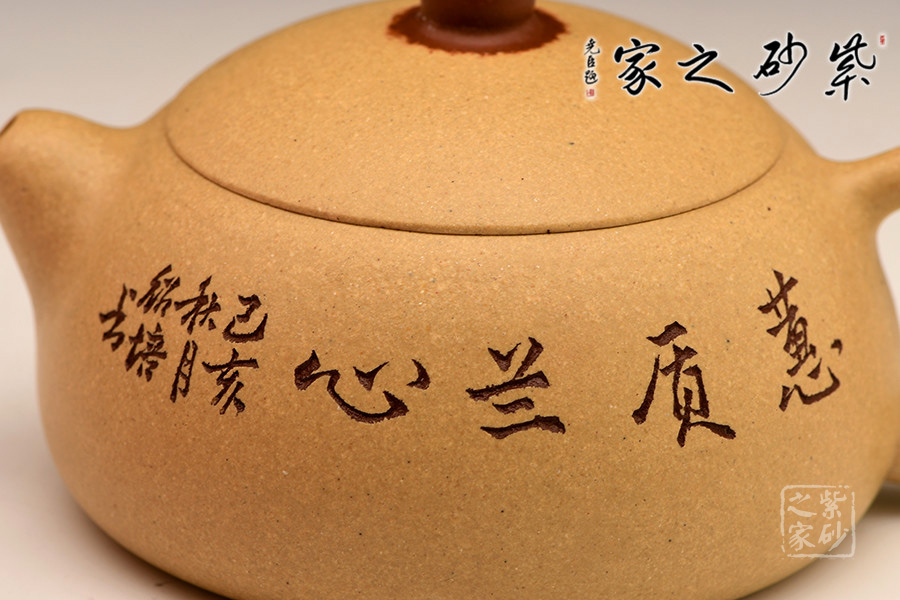 紫砂之家
蕙质兰心
己亥
秋月
绍培
书
紫砂
之家